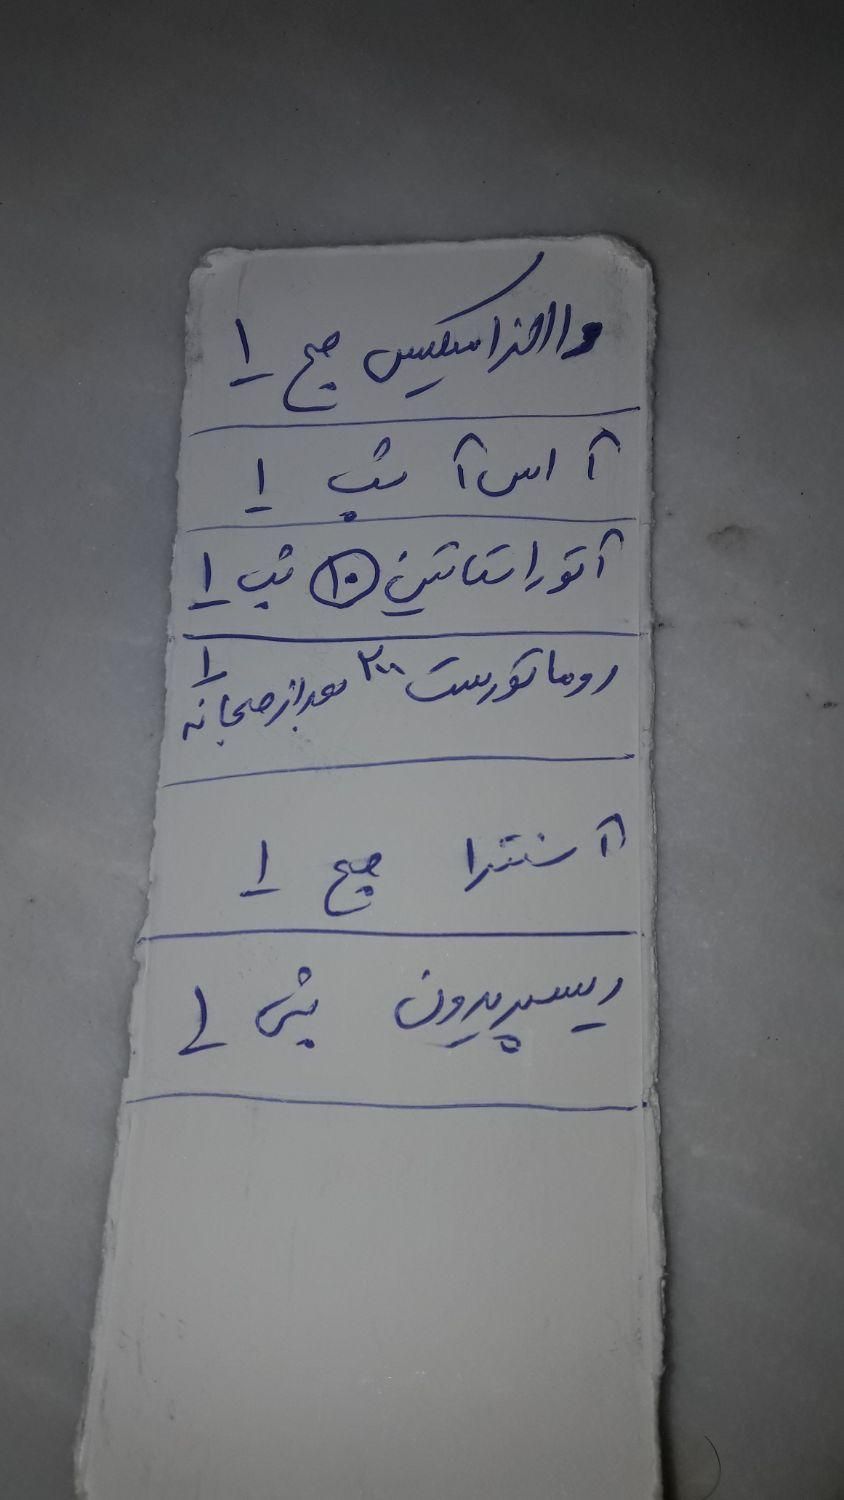 والزامیکس صبح ۱
آ اس آ شب ۱
آتوراستاتین ۱۰ شب ۱
روماتورست ۲۰۰ بعد از صبحانه ۱
آسنترا صبح ۱
ریسپریدون شب ۱